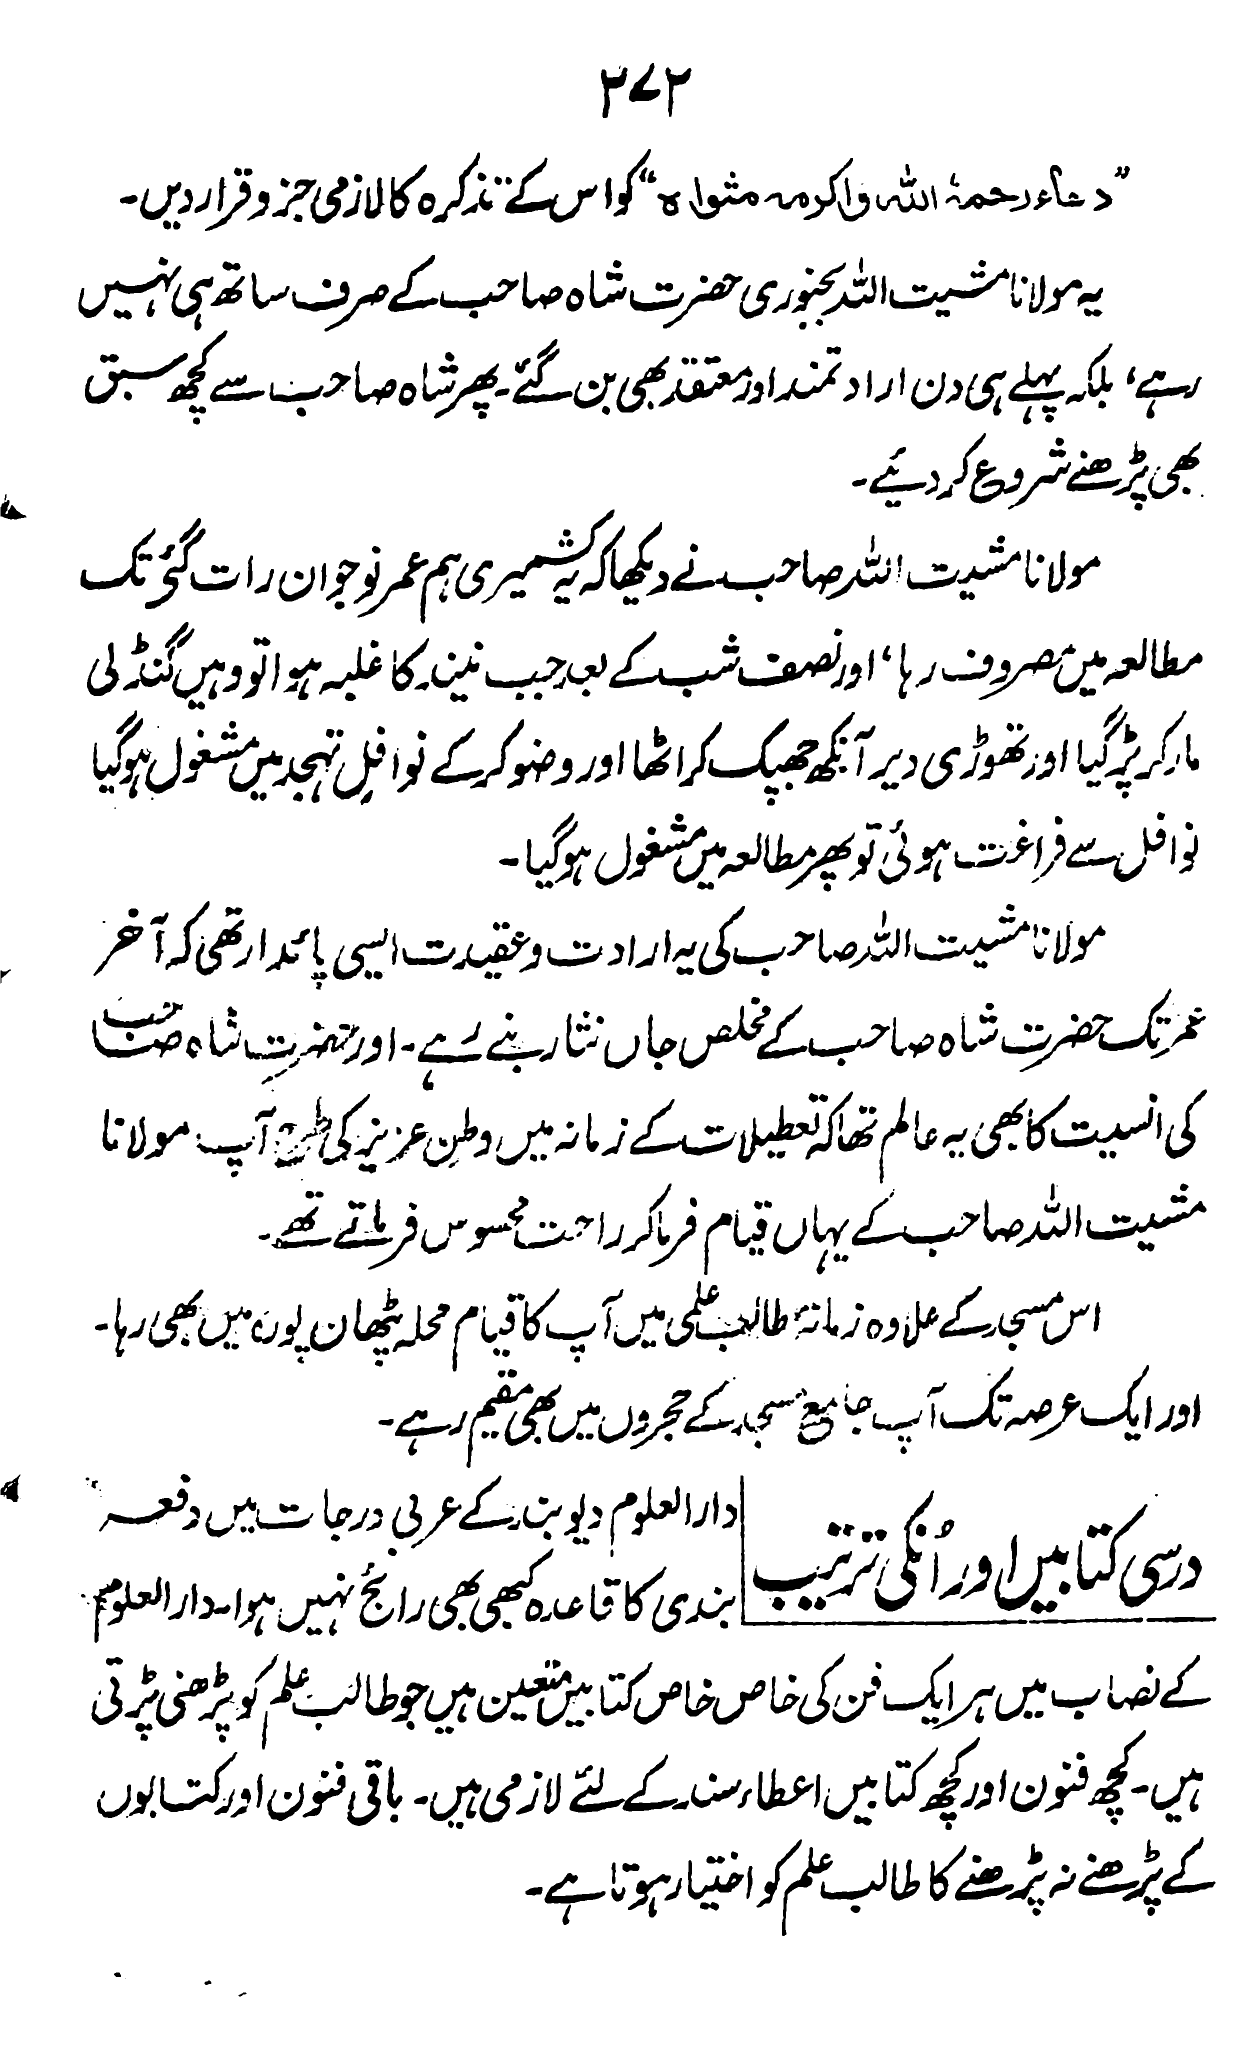 ۳۷۲
”دعاء رحمۂ اللہ واکرمہ مثواہ“ کو اس کے تذکرہ کا لازمی جزو قرار دیں۔
یہ مولانا مشیت اللہ بجنوری حضرت شاہ صاحب کے صرف ساتھ ہی نہیں
رہے، بلکہ پہلے ہی دن ارادتمند اور معتقد بھی بن گئے۔ پھر شاہ صاحب سے کچھ سبق
بھی پڑھنے شروع کر دیئے۔
مولانا مشیت اللہ صاحب نے دیکھا کہ یہ کشمیری ہم عمر نوجوان رات گئی تک
مطالعہ میں مصروف رہا، اور نصف شب کے بعد جب نیند کا غلبہ ہوا تو وہیں گنڈلی
مار کر پڑ گیا اور تھوڑی دیر آنکھ جھپک کر اٹھا اور وضو کر کے نوافلِ تہجد میں مشغول ہو گیا
نوافل سے فراغت ہوئی تو پھر مطالعہ میں مشغول ہو گیا۔
مولانا مشیت اللہ صاحب کی یہ ارادت و عقیدت ایسی پائدار تھی کہ آخر
عمر تک حضرت شاہ صاحب کے مخلص جاں نثار بنے رہے۔ اور حضرت شاہ صاحب
کی انسیت کا بھی یہ عالم تھا کہ تعطیلات کے زمانہ میں وطن عزیز کی طرح آپ مولانا
مشیت اللہ صاحب کے یہاں قیام فرما کر راحت محسوس فرماتے تھے۔
اس مسجد کے علاوہ زمانۂ طالب علمی میں آپ کا قیام محلہ پٹھان پورہ میں بھی رہا۔
اور ایک عرصہ تک آپ جامع مسجد کے حجروں میں بھی مقیم رہے۔
درسی کتابیں اور اُنکی ترتیب
دارالعلوم دیوبند کے عربی درجات میں دفعہ
بندی کا قاعدہ کبھی بھی رائج نہیں ہوا۔ دارالعلوم
کے نصاب میں ہر ایک فن کی خاص خاص کتابیں متعین ہیں جو طالب علم کو پڑھنی پڑتی
ہیں۔ کچھ فنون اور کچھ کتابیں اعطاء سند کے لئے لازمی ہیں۔ باقی فنون اور کتابوں
کے پڑھنے نہ پڑھنے کا طالب علم کو اختیار ہوتا ہے۔